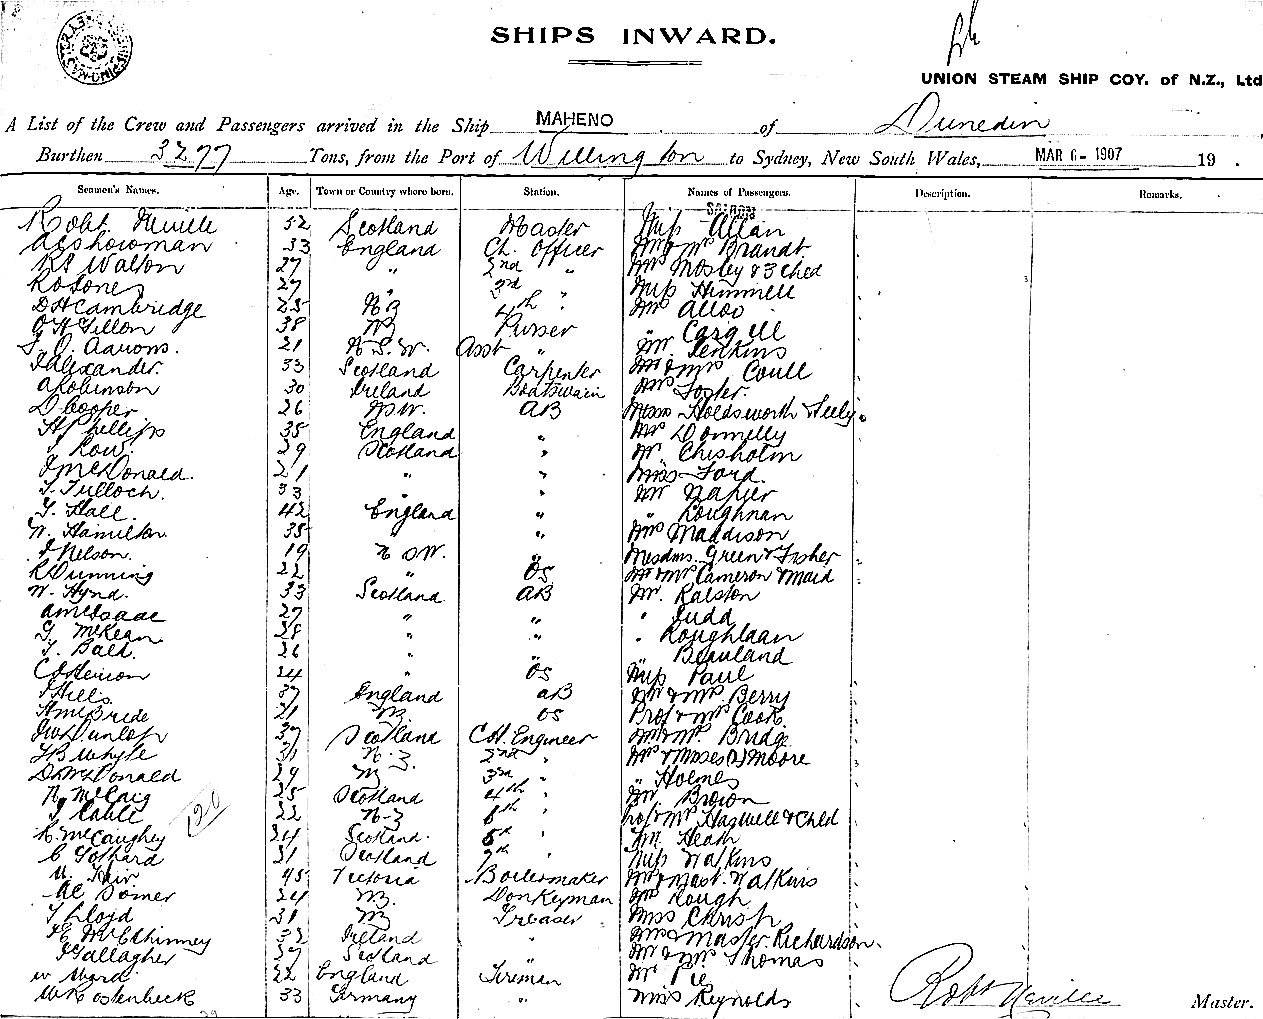 SHIPS INWARD.
UNION STEAM SHIP COY. of N.Z., Ltd
A List of the Crew and Passengers arrived in the Ship MAHENO of Dunedin
Burthen 3277 Tons, from the Port of Wellington to Sydney, New South Wales, MAR 6 - 1907 19 .
Seamen's Names. Age. Town or Country where born. Station. Names of Passengers. Description. Remarks.
SALOON
Robt. Neville 52 Scotland Master Miss Allan
33 England Ch. Officer Mr & Mrs Brandt
Walton 27 " 2nd " Mrs Mosley & 3 Ched
27 " 3rd Miss Himmell
D H Cambridge 25 NZ 4th " Mr
38 NZ Purser " Cargill
Aarons. 21 N.S.W. Asst " Mr. Jenkins
Alexander. 33 Scotland Carpenter Mr & Mrs Coull
A Robinson 30 Ireland Boatswain Mrs Foster.
D Cooper 26 NSW. AB Holdsworth & Seely
H Phillips 35 England " Mr Donnelly
Row. 29 Scotland " Mr. Chisholm
McDonald. 21 " " Miss Ford.
T. Tulloch. 33 " " Mr Napier
Hall. 42 England " " Loughnan
W. Hamilton 38 " Mrs Maddison
Nelson. 19 N SW. " Mesdms. Green & Fisher
R Dunning 22 " OS Mr & Mrs Cameron & Maid
W. Hynd. 33 Scotland AB Mr. Ralston
A McIsaac 27 " " " Judd
McKean. 28 " " " Roughlaan
Bald. 26 " " " Beauland
24 " OS Miss Paul
Hills. 37 England AB Mr & Mrs Berry
H McBride 21 NZ OS Prof & Mrs Cook
Dunlop 37 Scotland Ch. Engineer Mr & Mrs Bridge
Whyte 31 N.Z. 2nd " Mrs & Misses Moore
D. McDonald 29 NZ 3rd " " Holmes
N. McCaig 25 Scotland 4th " Mr. Brown
Cable 22 N-Z 5th " Prof & Mrs Haswell & Child
McCaughey 24 Scotland. " Mr. Heath
C Gothard 31 Scotland 7th " Miss Watkins
45 Victoria Boilermaker Mr & Mast. Watkins
24 NZ. Donkeyman Mrs Rough
Lloyd 31 NZ Greaser Miss Christi
McElhinney 32 Ireland " Mrs & Master. Richardson.
Gallagher 37 Scotland " Mr & Mrs Thomas
W Ward 22 England Fireman Mr
33 Germany " Miss Reynolds
Robt Neville Master.